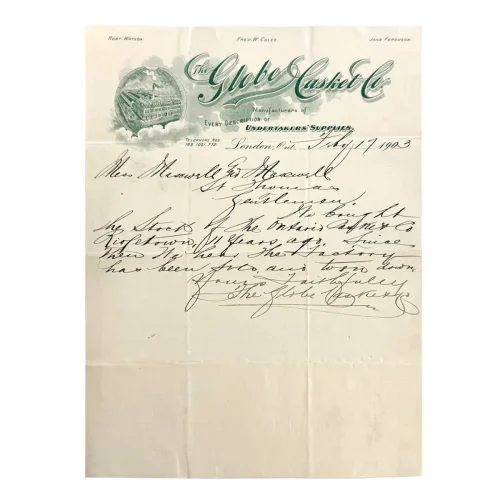 Robt Watson. Fred. W. Coles. John Ferguson.
The Globe Casket Co.
Manufacturers of
Every Description of
Undertakers' Supplies.
Telephone Nos
London, Ont. Feby 17 1903
Mess Maxwell & Maxwell
St Thomas
Gentlemen.
We bought
the Stock of the Ontario Casket Co
Ridgetown, 11 Years ago, Since
then We hear The Factory
has been sold, and torn down
Yours Faithfully
The Globe Casket Co